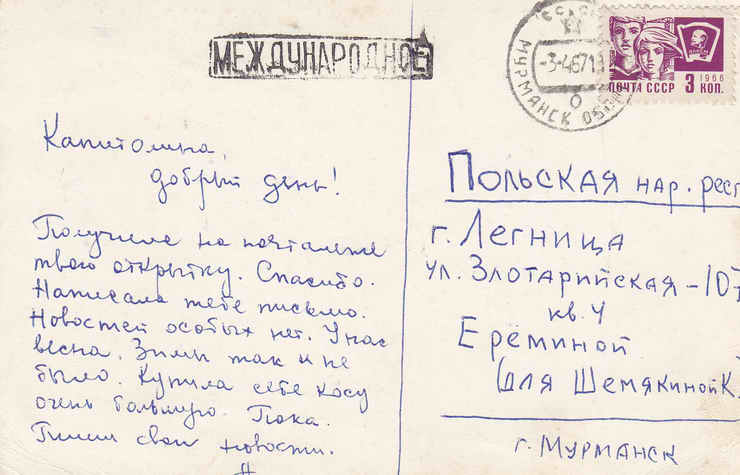 МЕЖДУНАРОДНОЕ
МУРМАНСК ОБЛ
-3-4-67
б
1966
ПОЧТА СССР 3 КОП.
Капитолина,
добрый день!
Получила на почтамте
твою открытку. Спасибо.
Написала тебе письмо.
Новостей особых нет. У нас
весна. Зимы так и не
было. Купила себе косу
очень большую. Пока.
Пиши свои новости.
ПОЛЬСКАЯ нар. респ
г. Легница
ул. Злотарийская-107
кв. 4
Ерёминой
(для Шемякиной К.
г. Мурманск